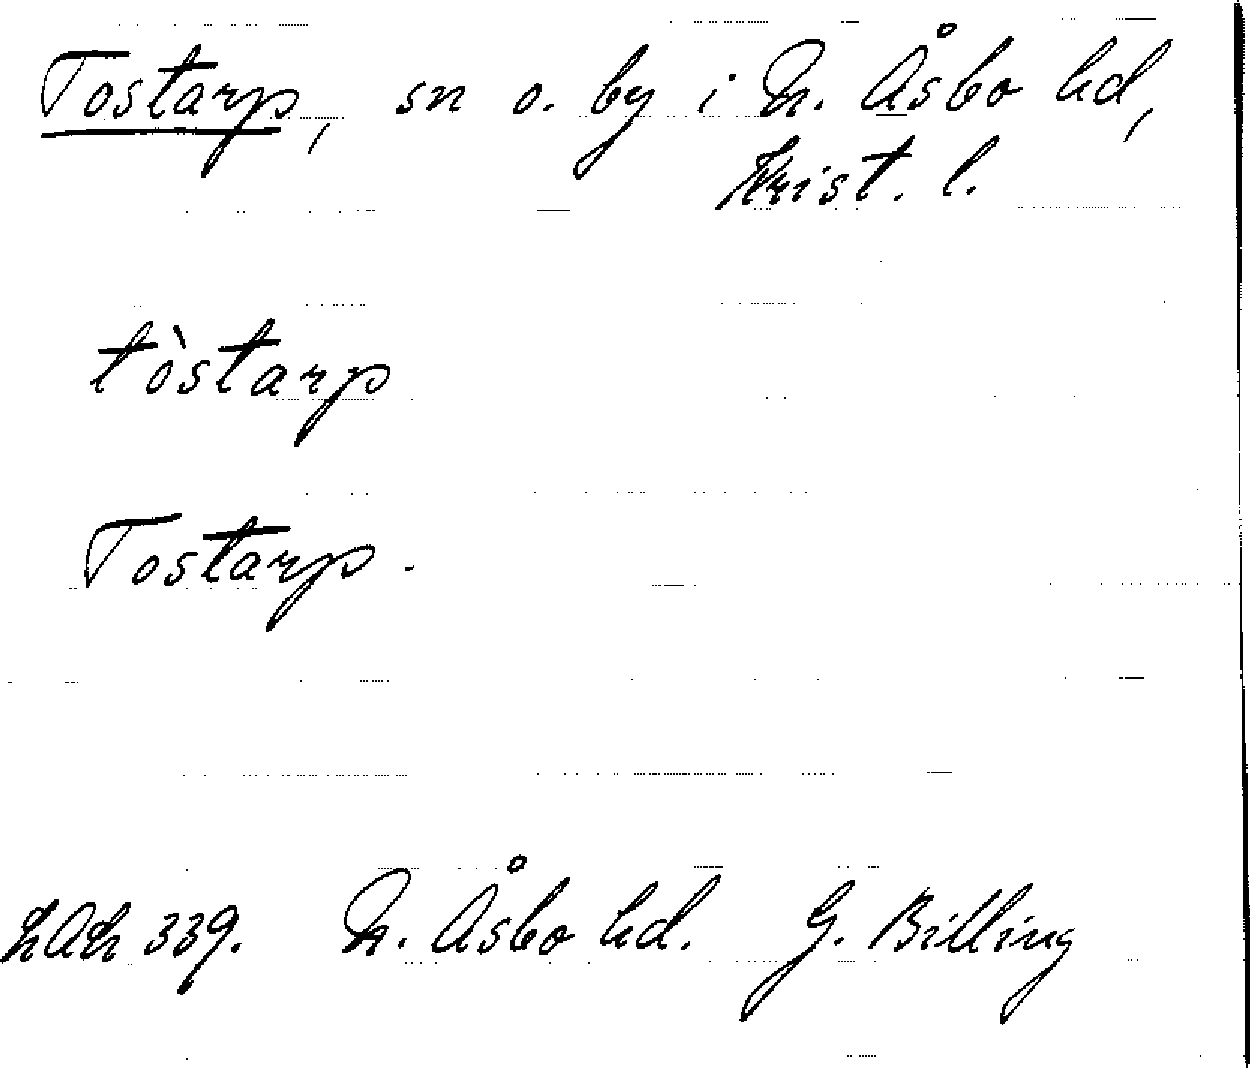 Tostarp, sn o. by i N. Åsbo hd,
Krist. l.
tòstarp
Tostarp.
LAL 339. N. Åsbo hd. G. Billing